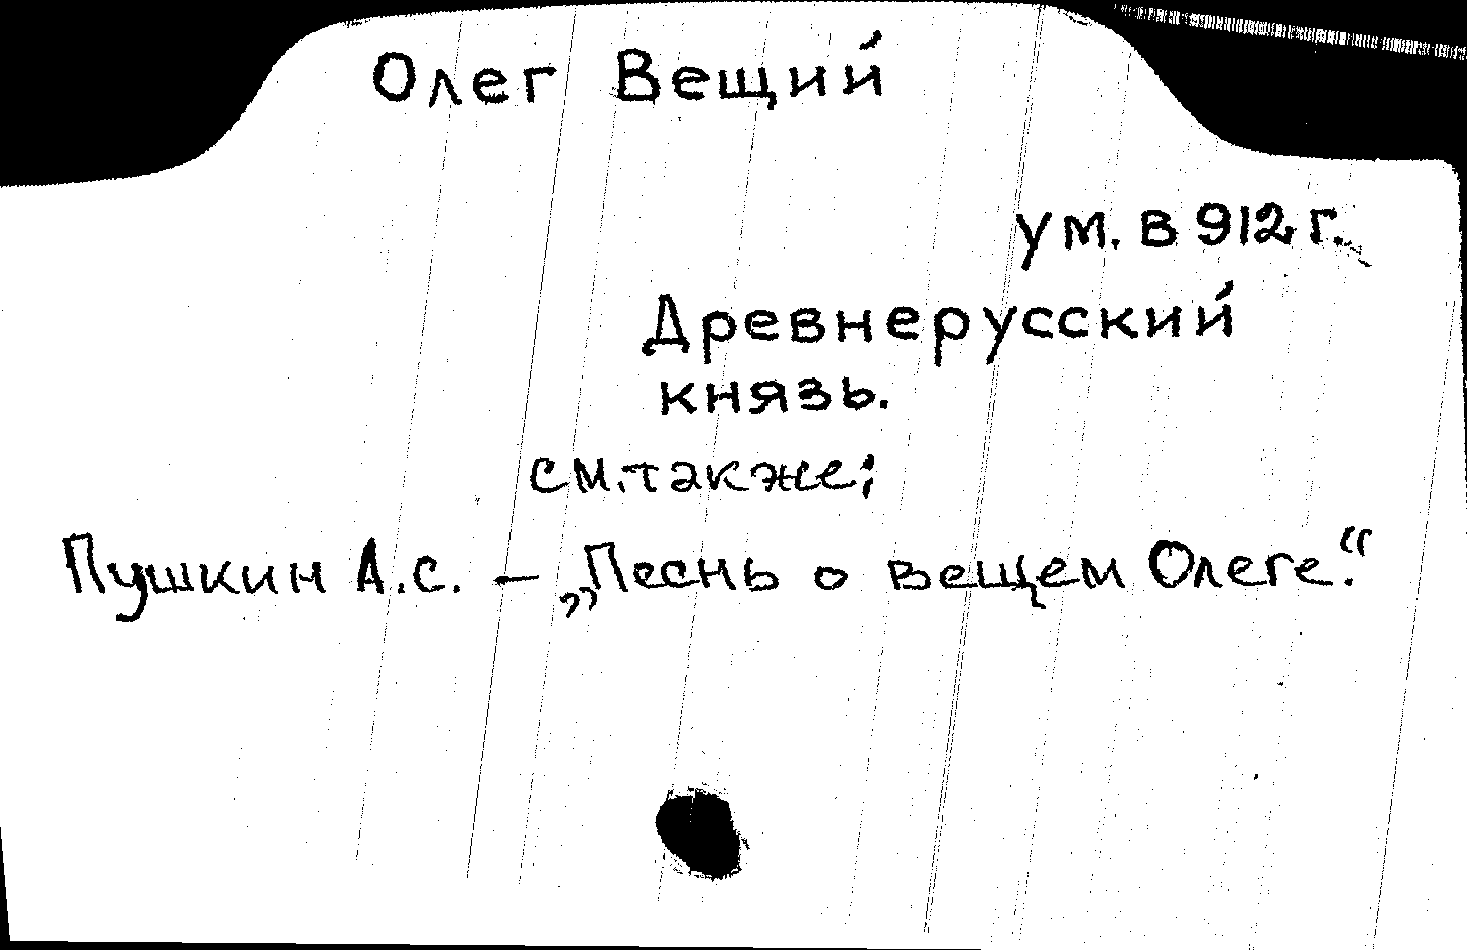 Олег Вещий
ум. в 912 г.
Древнерусский
князь.
см. также:
Пушкин А.С. — „Песнь о вещем Олеге.“